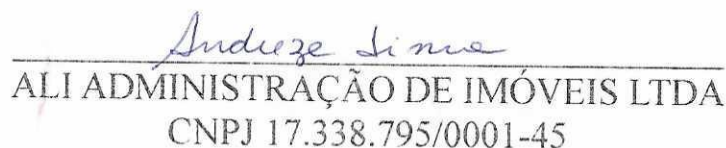 ALI ADMINISTRAÇÃO DE IMÓVEIS LTDA
CNPJ 17.338.795/0001-45